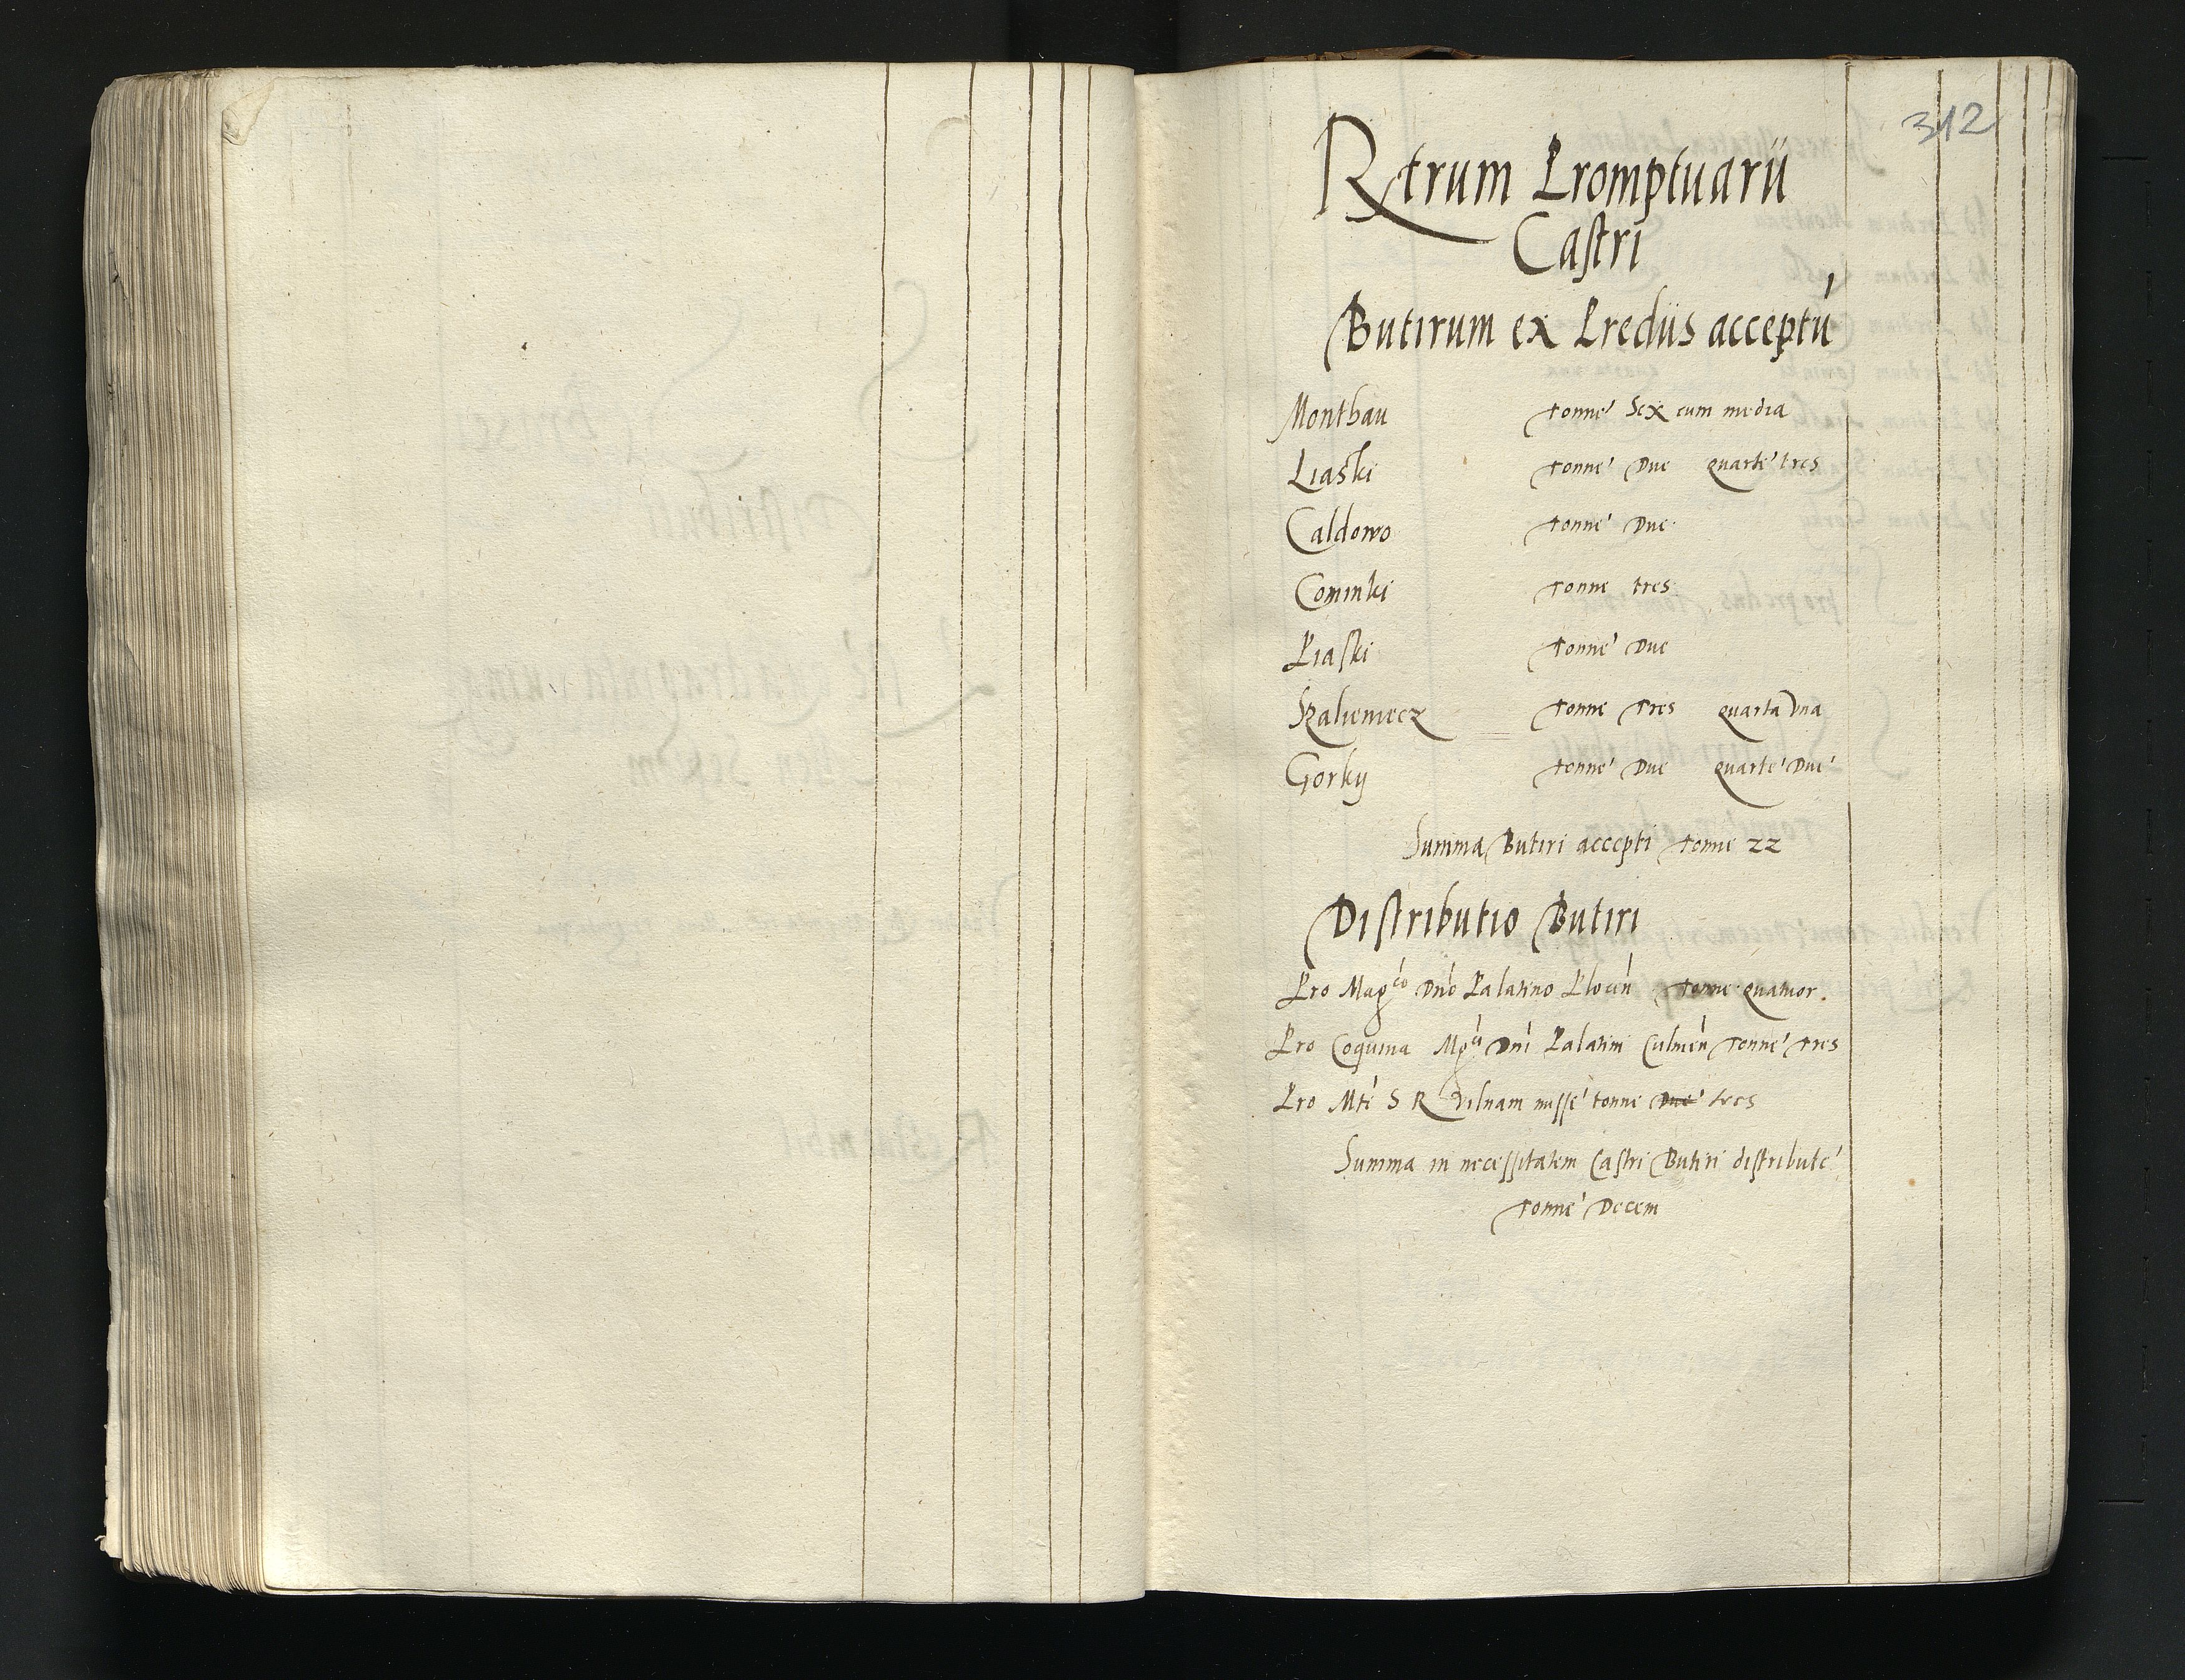 312
Rtrum Promptuarii
Castri
Butirum ex Prediis acceptú
Monthau Tonne Sex cum media
Liaski Tonne Due quarte tres
Caldowo Tonne Due
Cominki Tonne tres
Piaski Tonne Due
Kaliemecz Tonne Tres quarta Vna
Gorky Tonne Due quarte Due
Summa Butiri accepti Tonne 22
Distributio Butiri
Pro Magco Dno Palatino Plocen Tonne quatuor.
Pro Coquina Mgci Dni Palatini Culmen Tonne Tres
Pro Mte S R Vilnam misse tonne Due tres
Summa in necessitatem Castri Butiri distribute
Tonne Decem